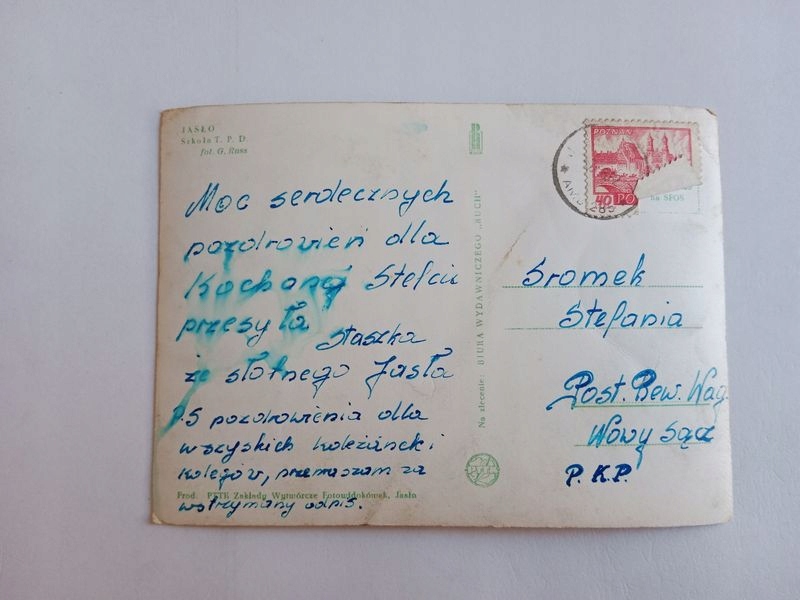 JASŁO
Szkoła T. P. D.
fot. G. Russ
Moc serdecznych
pozdrowień dla
Kochanej Stefcii
przesyła
Staszka
ze słotnego Jasła
P.S pozdrowienia dla
wszyskich koleżanek i
kolegów, przepraszam za
wstrzymany odpis.
Prod. PTTK Zakłady Wytwórcze Fotowidokówek, Jasło
Na zlecenie: BIURA WYDAWNICZEGO „RUCH"
POZNAŃ
40 PO
na SFOS
Sromek
Stefania
Post. Rew. Wag.
Nowy Sącz
P.K.P.